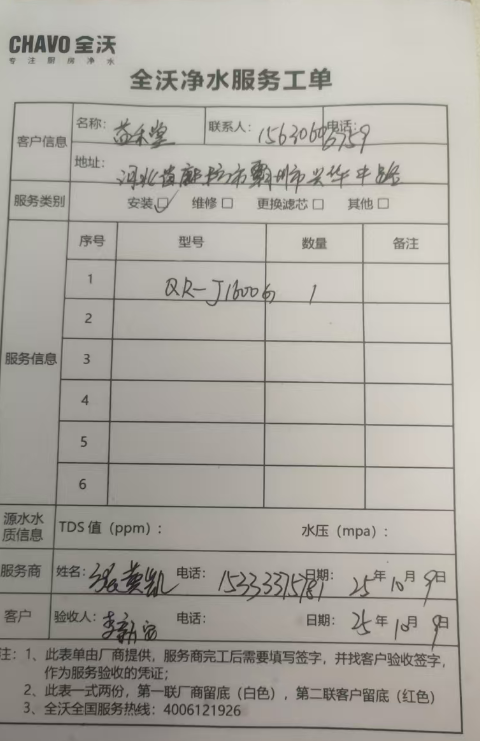 CHAVO 全沃
专注厨房净水
全沃净水服务工单
客户信息 名称：益禾堂 联系人： 电话：
地址：河北省廊坊市霸州市兴华中路
服务类别 安装☑ 维修□ 更换滤芯□ 其他□
服务信息
序号 型号 数量 备注
1 QR-J1600G 1
2
3
4
5
6
源水水质信息 TDS 值（ppm）： 水压（mpa）：
服务商 姓名： 电话： 日期：25年10月9日
客户 验收人： 电话： 日期：25年10月9日
注：1、此表单由厂商提供，服务商完工后需要填写签字，并找客户验收签字，
作为服务验收的凭证；
2、此表一式两份，第一联厂商留底（白色），第二联客户留底（红色）
3、全沃全国服务热线：4006121926